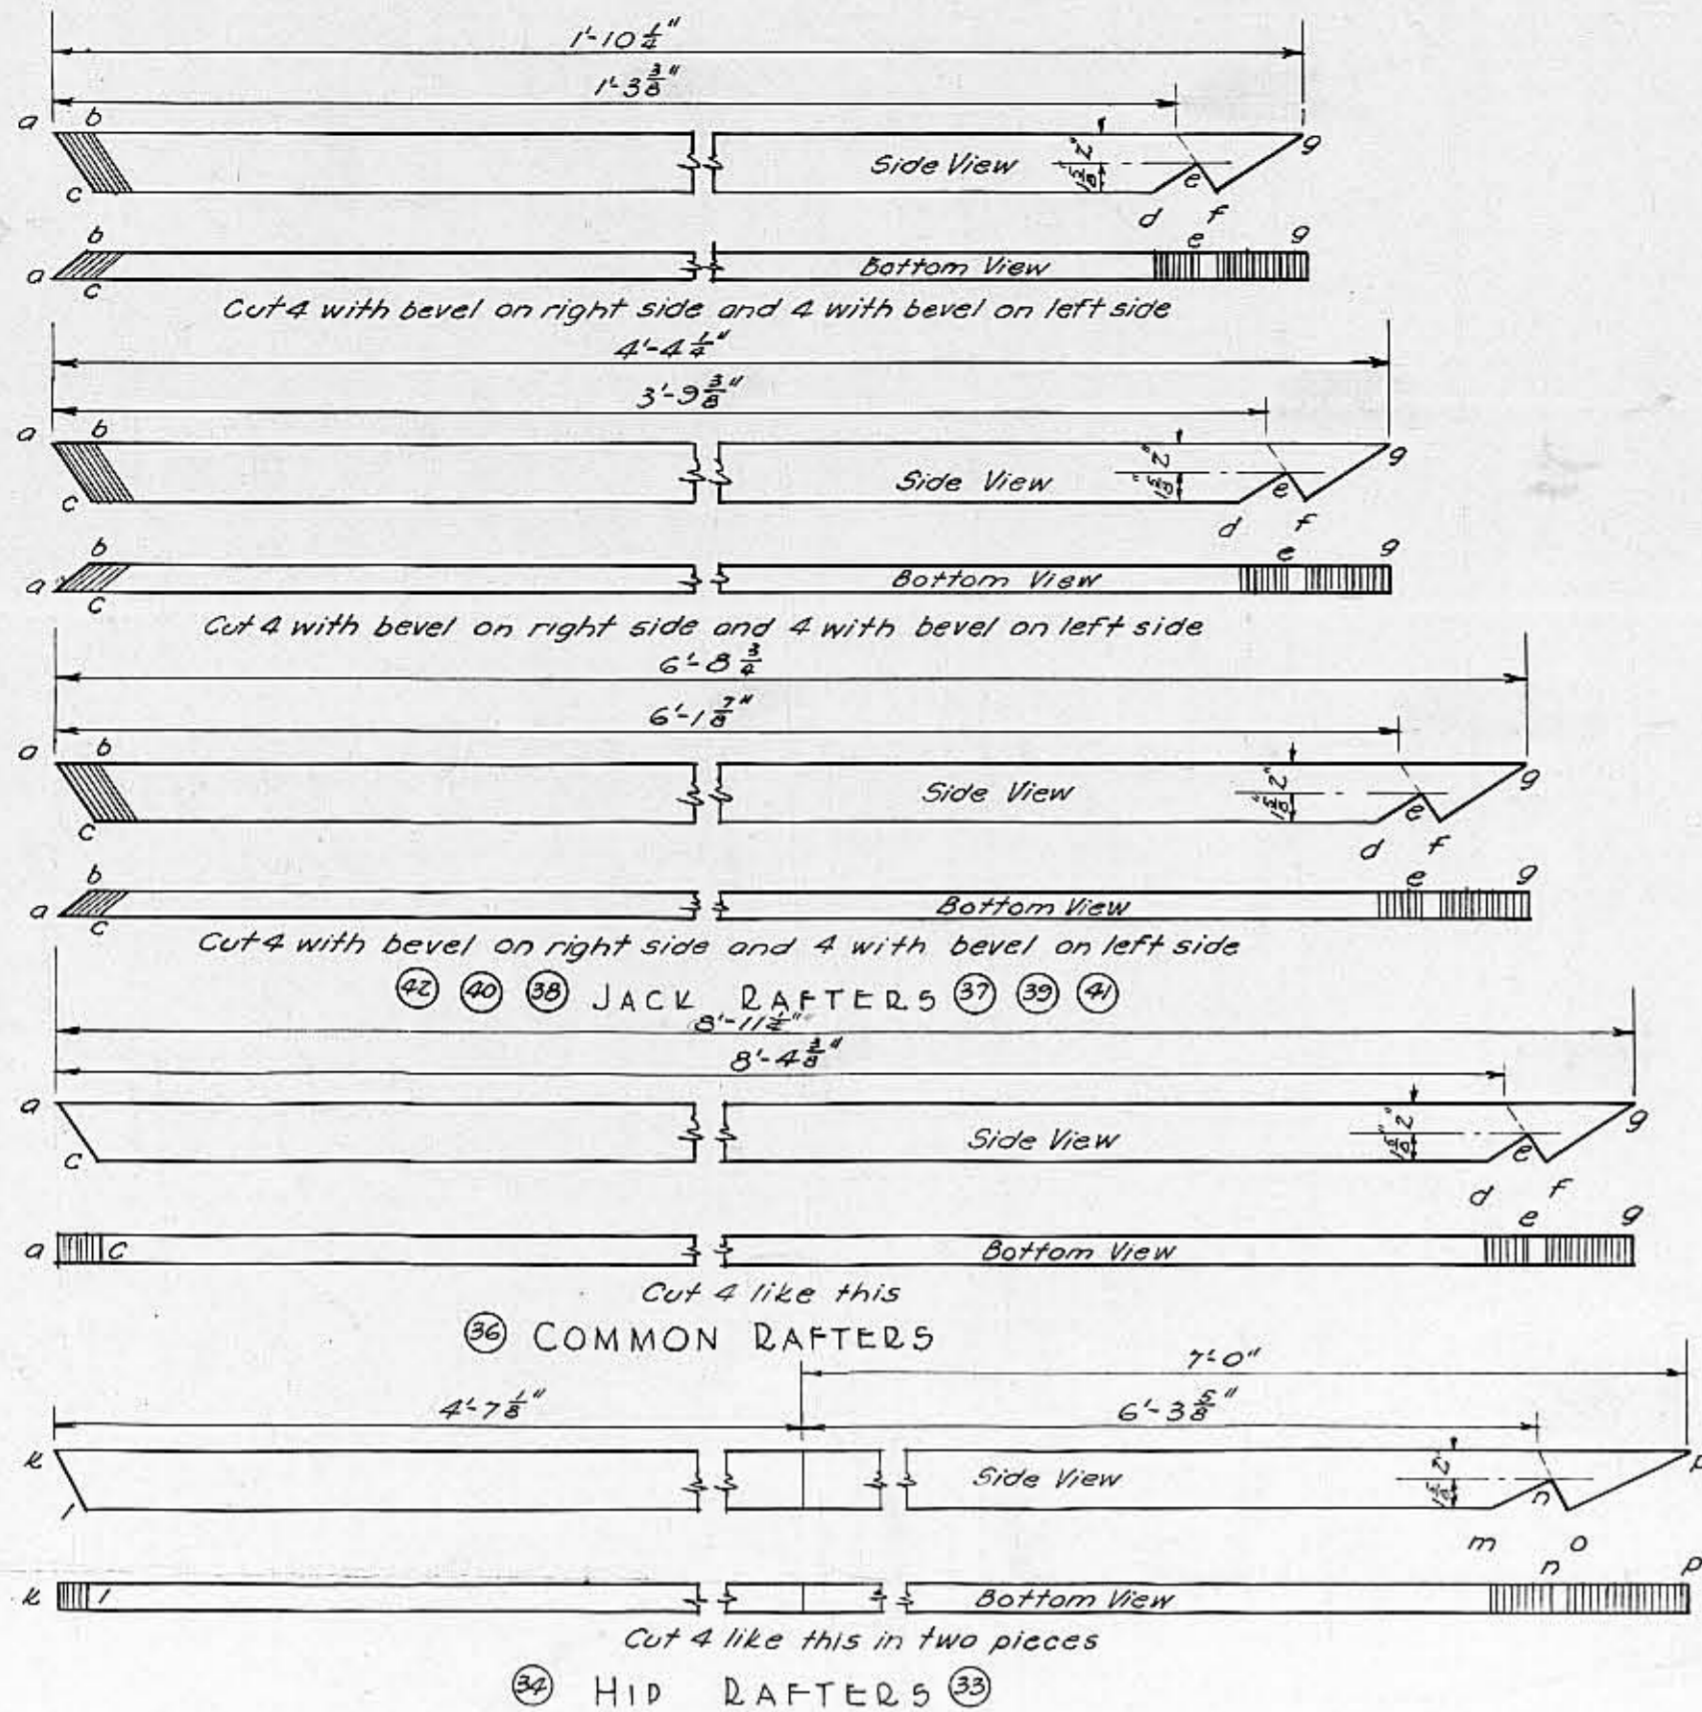 1'-10 1/4"
1'-3 3/8"
a b
Side View
2"
1 5/8"
g
c
d e f
b e g
a c
Bottom View
Cut 4 with bevel on right side and 4 with bevel on left side
4'-4 1/4"
3'-9 3/8"
a b
Side View
2"
1 5/8"
g
c
d e f
b e g
a c
Bottom View
Cut 4 with bevel on right side and 4 with bevel on left side
6'-8 3/4
6'-1 7/8"
a b
Side View
2"
1 5/8"
g
c
d e f
b e g
a c
Bottom View
Cut 4 with bevel on right side and 4 with bevel on left side
42 40 38 JACK RAFTERS 37 39 41
8'-4 3/8"
a
Side View
2"
1 5/8"
g
c
d e f
e g
a c
Bottom View
Cut 4 like this
36 COMMON RAFTERS
7'-0"
4'-7 1/8"
6'-3 5/8"
k
Side View
2"
1 5/8"
p
l
m n o
n p
k l
Bottom View
Cut 4 like this in two pieces
34 HIP RAFTERS 33